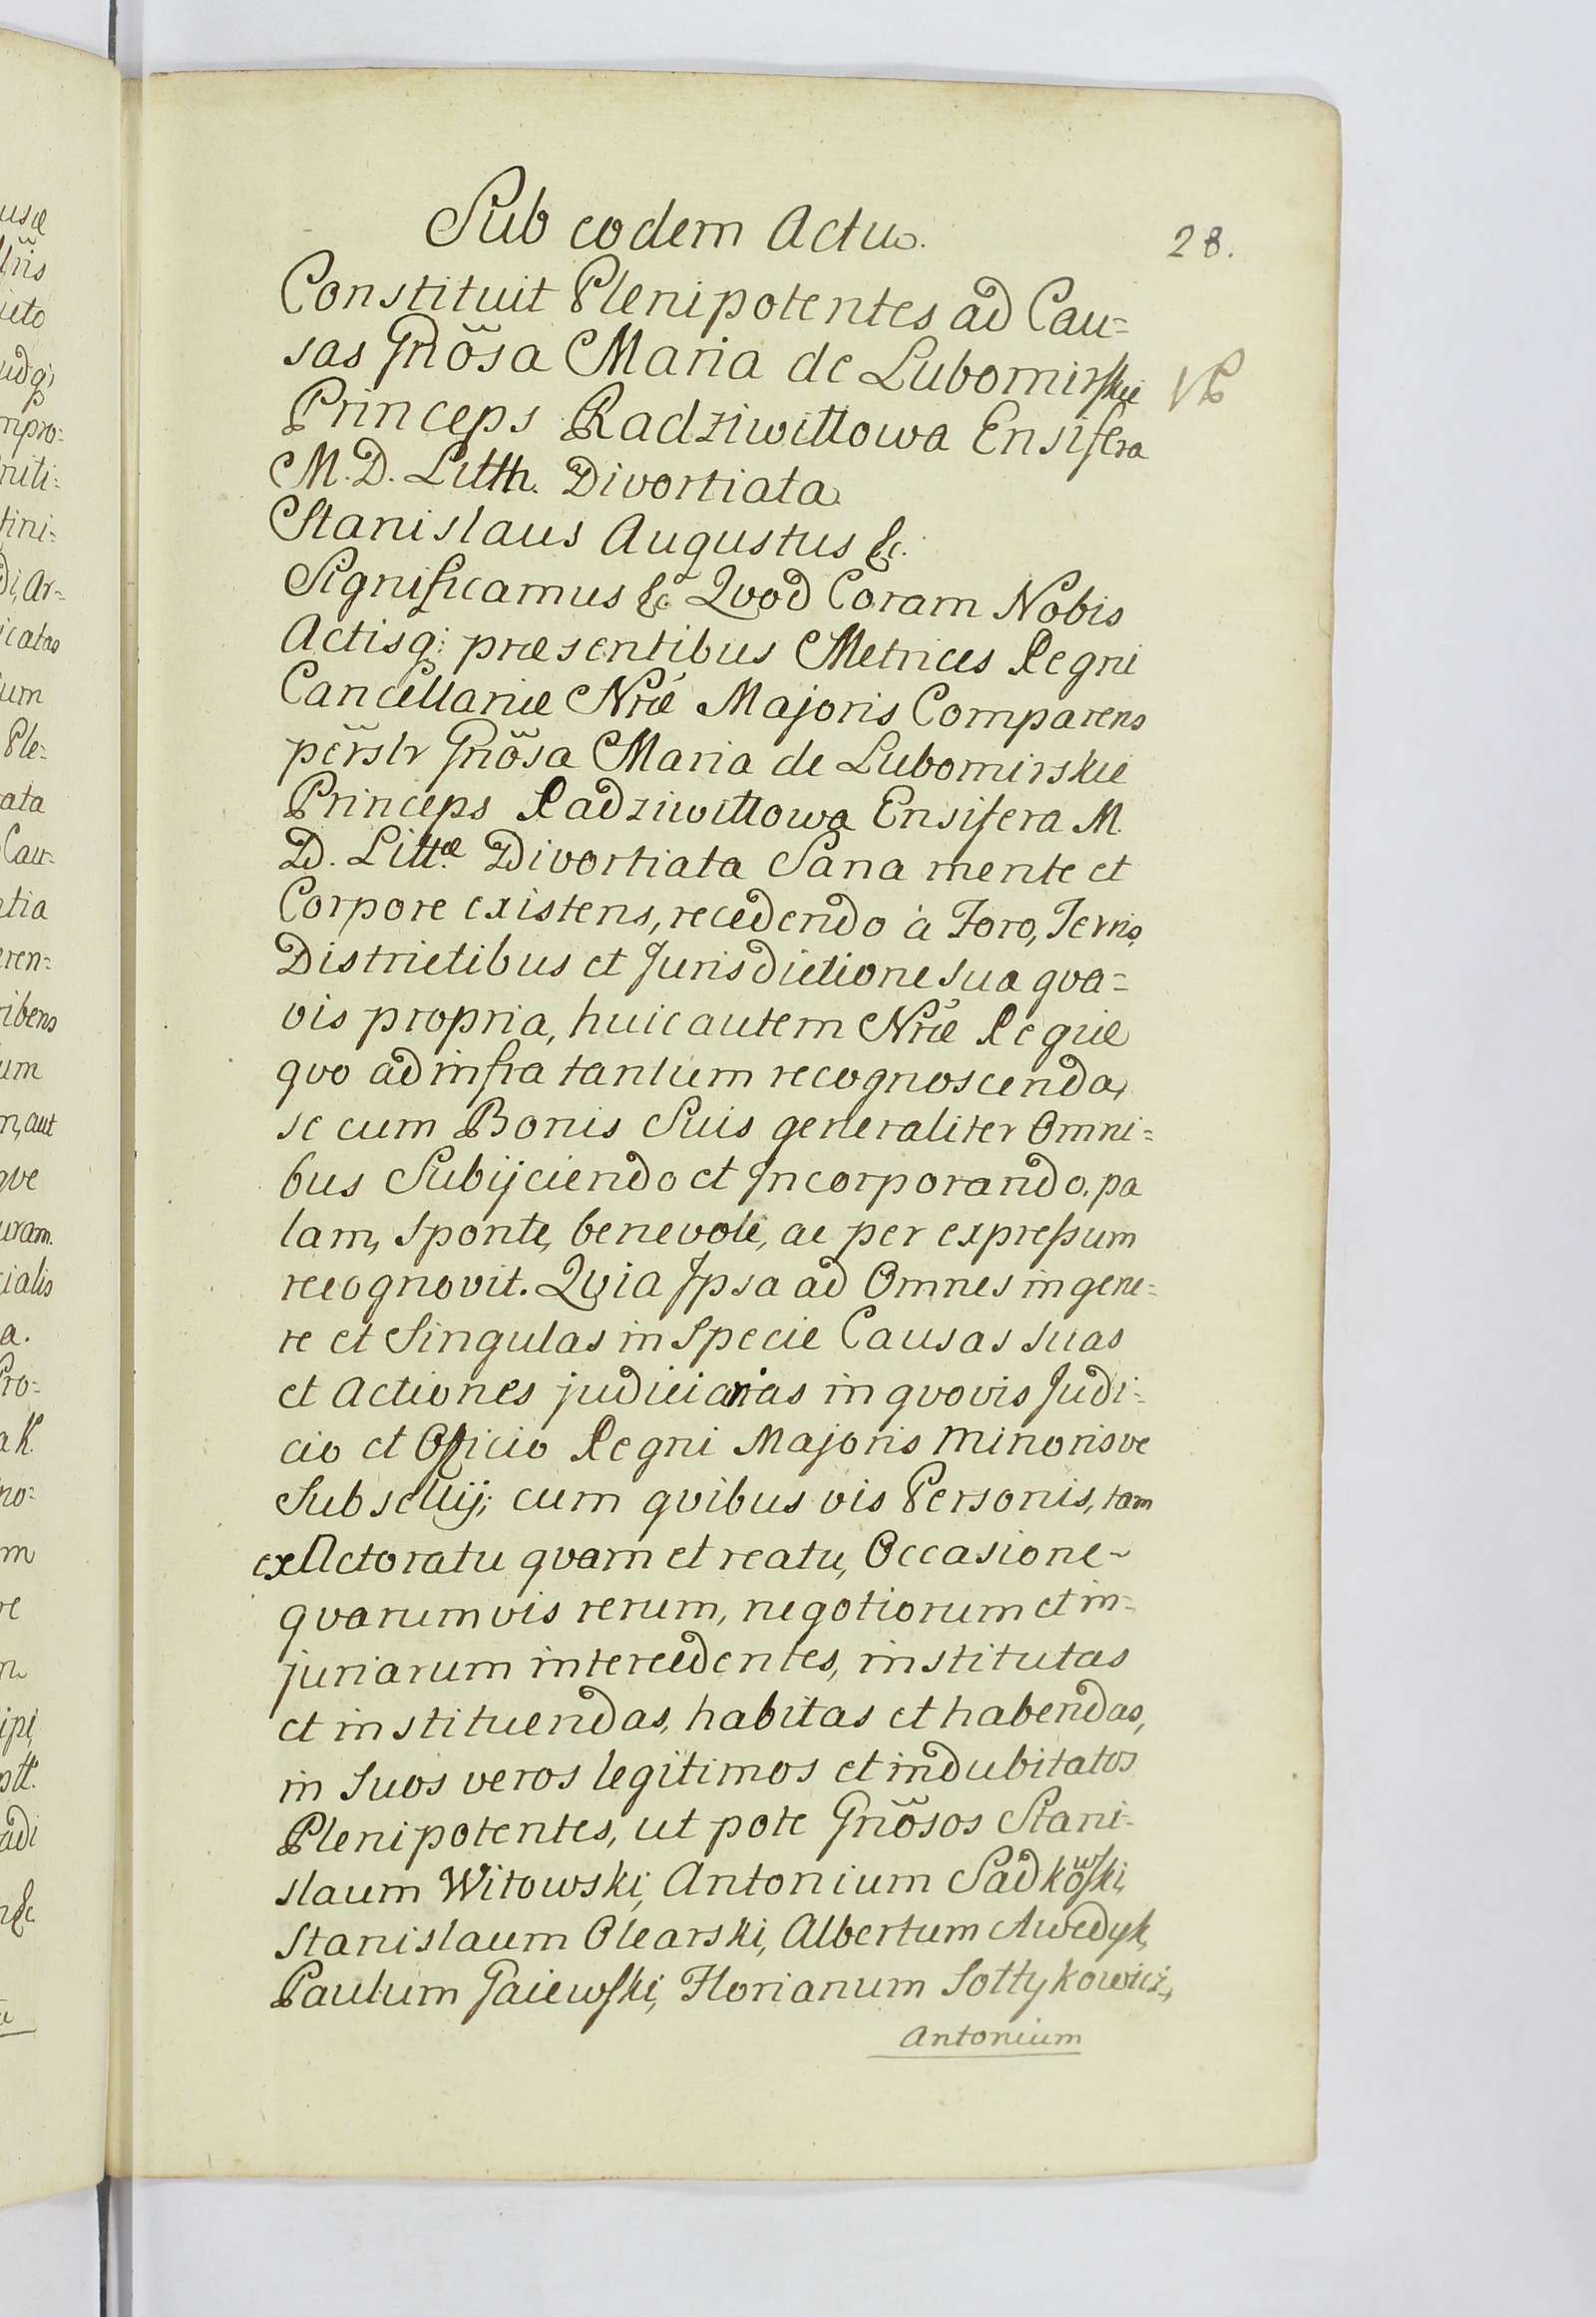 Sub eodem Actu.
28.
Constituit Plenipotentes ad Cau=
sas Gnõsa Maria de Lubomirskie
Princeps Radziwiłłowa Ensifera
M. D. Litth. Divortiata
Stanislaus Augustus &c.
Significamus &c Qvod Coram Nobis
Actisq: præsentibus Metrices Regni
Cancellariæ Nræ Majoris Comparens
persłr Gnõsa Maria de Lubomirskie
Princeps Radziwiłłowa Ensifera M.
D. Littæ Divortiata Sana mente et
Corpore existens, recedendo à Foro, Terris,
Districtibus et Jurisdictione sua qva=
vis propria, huic autem Nræ Regiæ
qvo ad infra tantum recognoscenda,
se cum Bonis Suis generaliter Omni=
bus Subijciendo et Incorporando, pa
lam, sponte, benevole, ac per expressum
recognovit. Qvia Ipsa ad Omnes in gene=
re et Singulas in Specie Causas suas
et Actiones judiciarias in qvovis Judi=
cio et Officio Regni Majoris Minorisve
Subsellij; cum qvibus vis Personis, tam
ex Actoratu qvam et reatu, Occasione
qvarumvis rerum, negotiorum et in=
juriarum intercedentes, institutas
et instituendas, habitas et habendas,
in Suos veros legitimos et indubitatos
Plenipotentes, ut pote Gnõsos Stani=
slaum Witowski, Antonium Sadkowski,
Stanislaum Olearski, Albertum Awedyk,
Paulum Gaiewski, Florianum Sołtykowicz,
Antonium